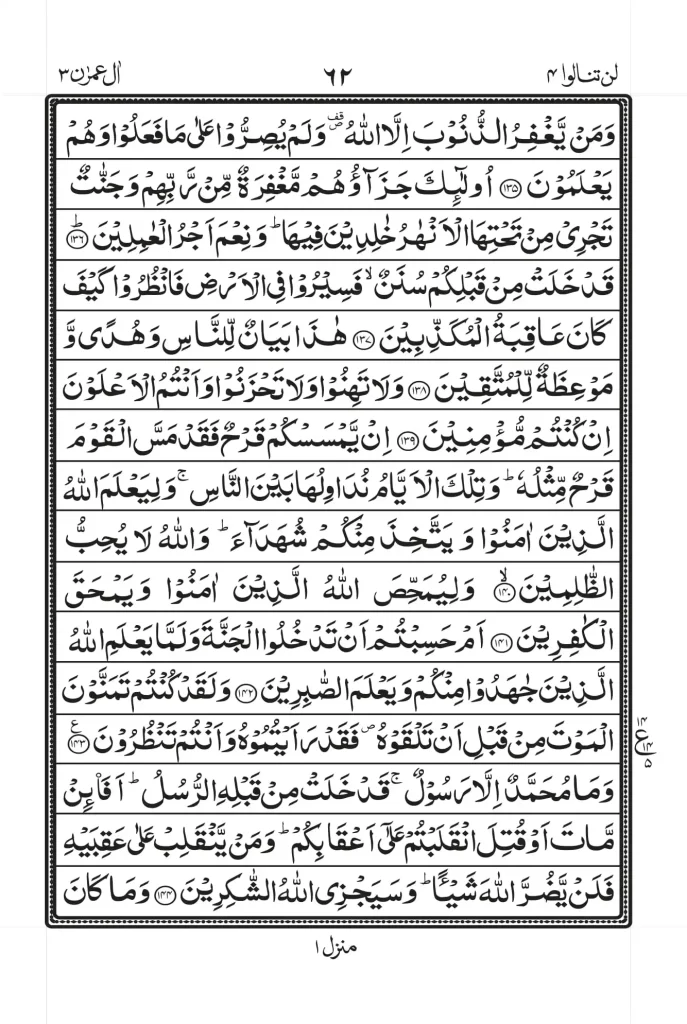 لن تنالوا ۴
۶۲
اٰل عمرٰن ۳
وَمَنْ يَّغْفِرُ الذُّنُوْبَ اِلَّا اللّٰهُ ۪ۖ وَلَمْ يُصِرُّوْا عَلٰى مَا فَعَلُوْا وَهُمْ
يَعْلَمُوْنَ ﴿۱۳۵﴾ اُولٰٓئِكَ جَزَآؤُهُمْ مَّغْفِرَةٌ مِّنْ رَّبِّهِمْ وَجَنّٰتٌ
تَجْرِيْ مِنْ تَحْتِهَا الْاَنْهٰرُ خٰلِدِيْنَ فِيْهَا ؕ وَنِعْمَ اَجْرُ الْعٰمِلِيْنَ ﴿۱۳۶﴾ؕ
قَدْ خَلَتْ مِنْ قَبْلِكُمْ سُنَنٌ ۙ فَسِيْرُوْا فِي الْاَرْضِ فَانْظُرُوْا كَيْفَ
كَانَ عَاقِبَةُ الْمُكَذِّبِيْنَ ﴿۱۳۷﴾ هٰذَا بَيَانٌ لِّلنَّاسِ وَهُدًى وَّ
مَوْعِظَةٌ لِّلْمُتَّقِيْنَ ﴿۱۳۸﴾ وَلَا تَهِنُوْا وَلَا تَحْزَنُوْا وَاَنْتُمُ الْاَعْلَوْنَ
اِنْ كُنْتُمْ مُّؤْمِنِيْنَ ﴿۱۳۹﴾ اِنْ يَّمْسَسْكُمْ قَرْحٌ فَقَدْ مَسَّ الْقَوْمَ
قَرْحٌ مِّثْلُهٗ ؕ وَتِلْكَ الْاَيَّامُ نُدَاوِلُهَا بَيْنَ النَّاسِ ۚ وَلِيَعْلَمَ اللّٰهُ
الَّذِيْنَ اٰمَنُوْا وَيَتَّخِذَ مِنْكُمْ شُهَدَآءَ ؕ وَاللّٰهُ لَا يُحِبُّ
الظّٰلِمِيْنَ ﴿۱۴۰﴾ۙ وَلِيُمَحِّصَ اللّٰهُ الَّذِيْنَ اٰمَنُوْا وَيَمْحَقَ
الْكٰفِرِيْنَ ﴿۱۴۱﴾ اَمْ حَسِبْتُمْ اَنْ تَدْخُلُوا الْجَنَّةَ وَلَمَّا يَعْلَمِ اللّٰهُ
الَّذِيْنَ جٰهَدُوْا مِنْكُمْ وَيَعْلَمَ الصّٰبِرِيْنَ ﴿۱۴۲﴾ وَلَقَدْ كُنْتُمْ تَمَنَّوْنَ
الْمَوْتَ مِنْ قَبْلِ اَنْ تَلْقَوْهُ ۪ فَقَدْ رَاَيْتُمُوْهُ وَاَنْتُمْ تَنْظُرُوْنَ ﴿۱۴۳﴾ع
۱۴
ع ۱۴
۵
وَمَا مُحَمَّدٌ اِلَّا رَسُوْلٌ ۚ قَدْ خَلَتْ مِنْ قَبْلِهِ الرُّسُلُ ؕ اَفَا۟ئِنْ
مَّاتَ اَوْ قُتِلَ انْقَلَبْتُمْ عَلٰٓى اَعْقَابِكُمْ ؕ وَمَنْ يَّنْقَلِبْ عَلٰى عَقِبَيْهِ
فَلَنْ يَّضُرَّ اللّٰهَ شَيْـًٔا ؕ وَسَيَجْزِي اللّٰهُ الشّٰكِرِيْنَ ﴿۱۴۴﴾ وَمَا كَانَ
منزل ۱